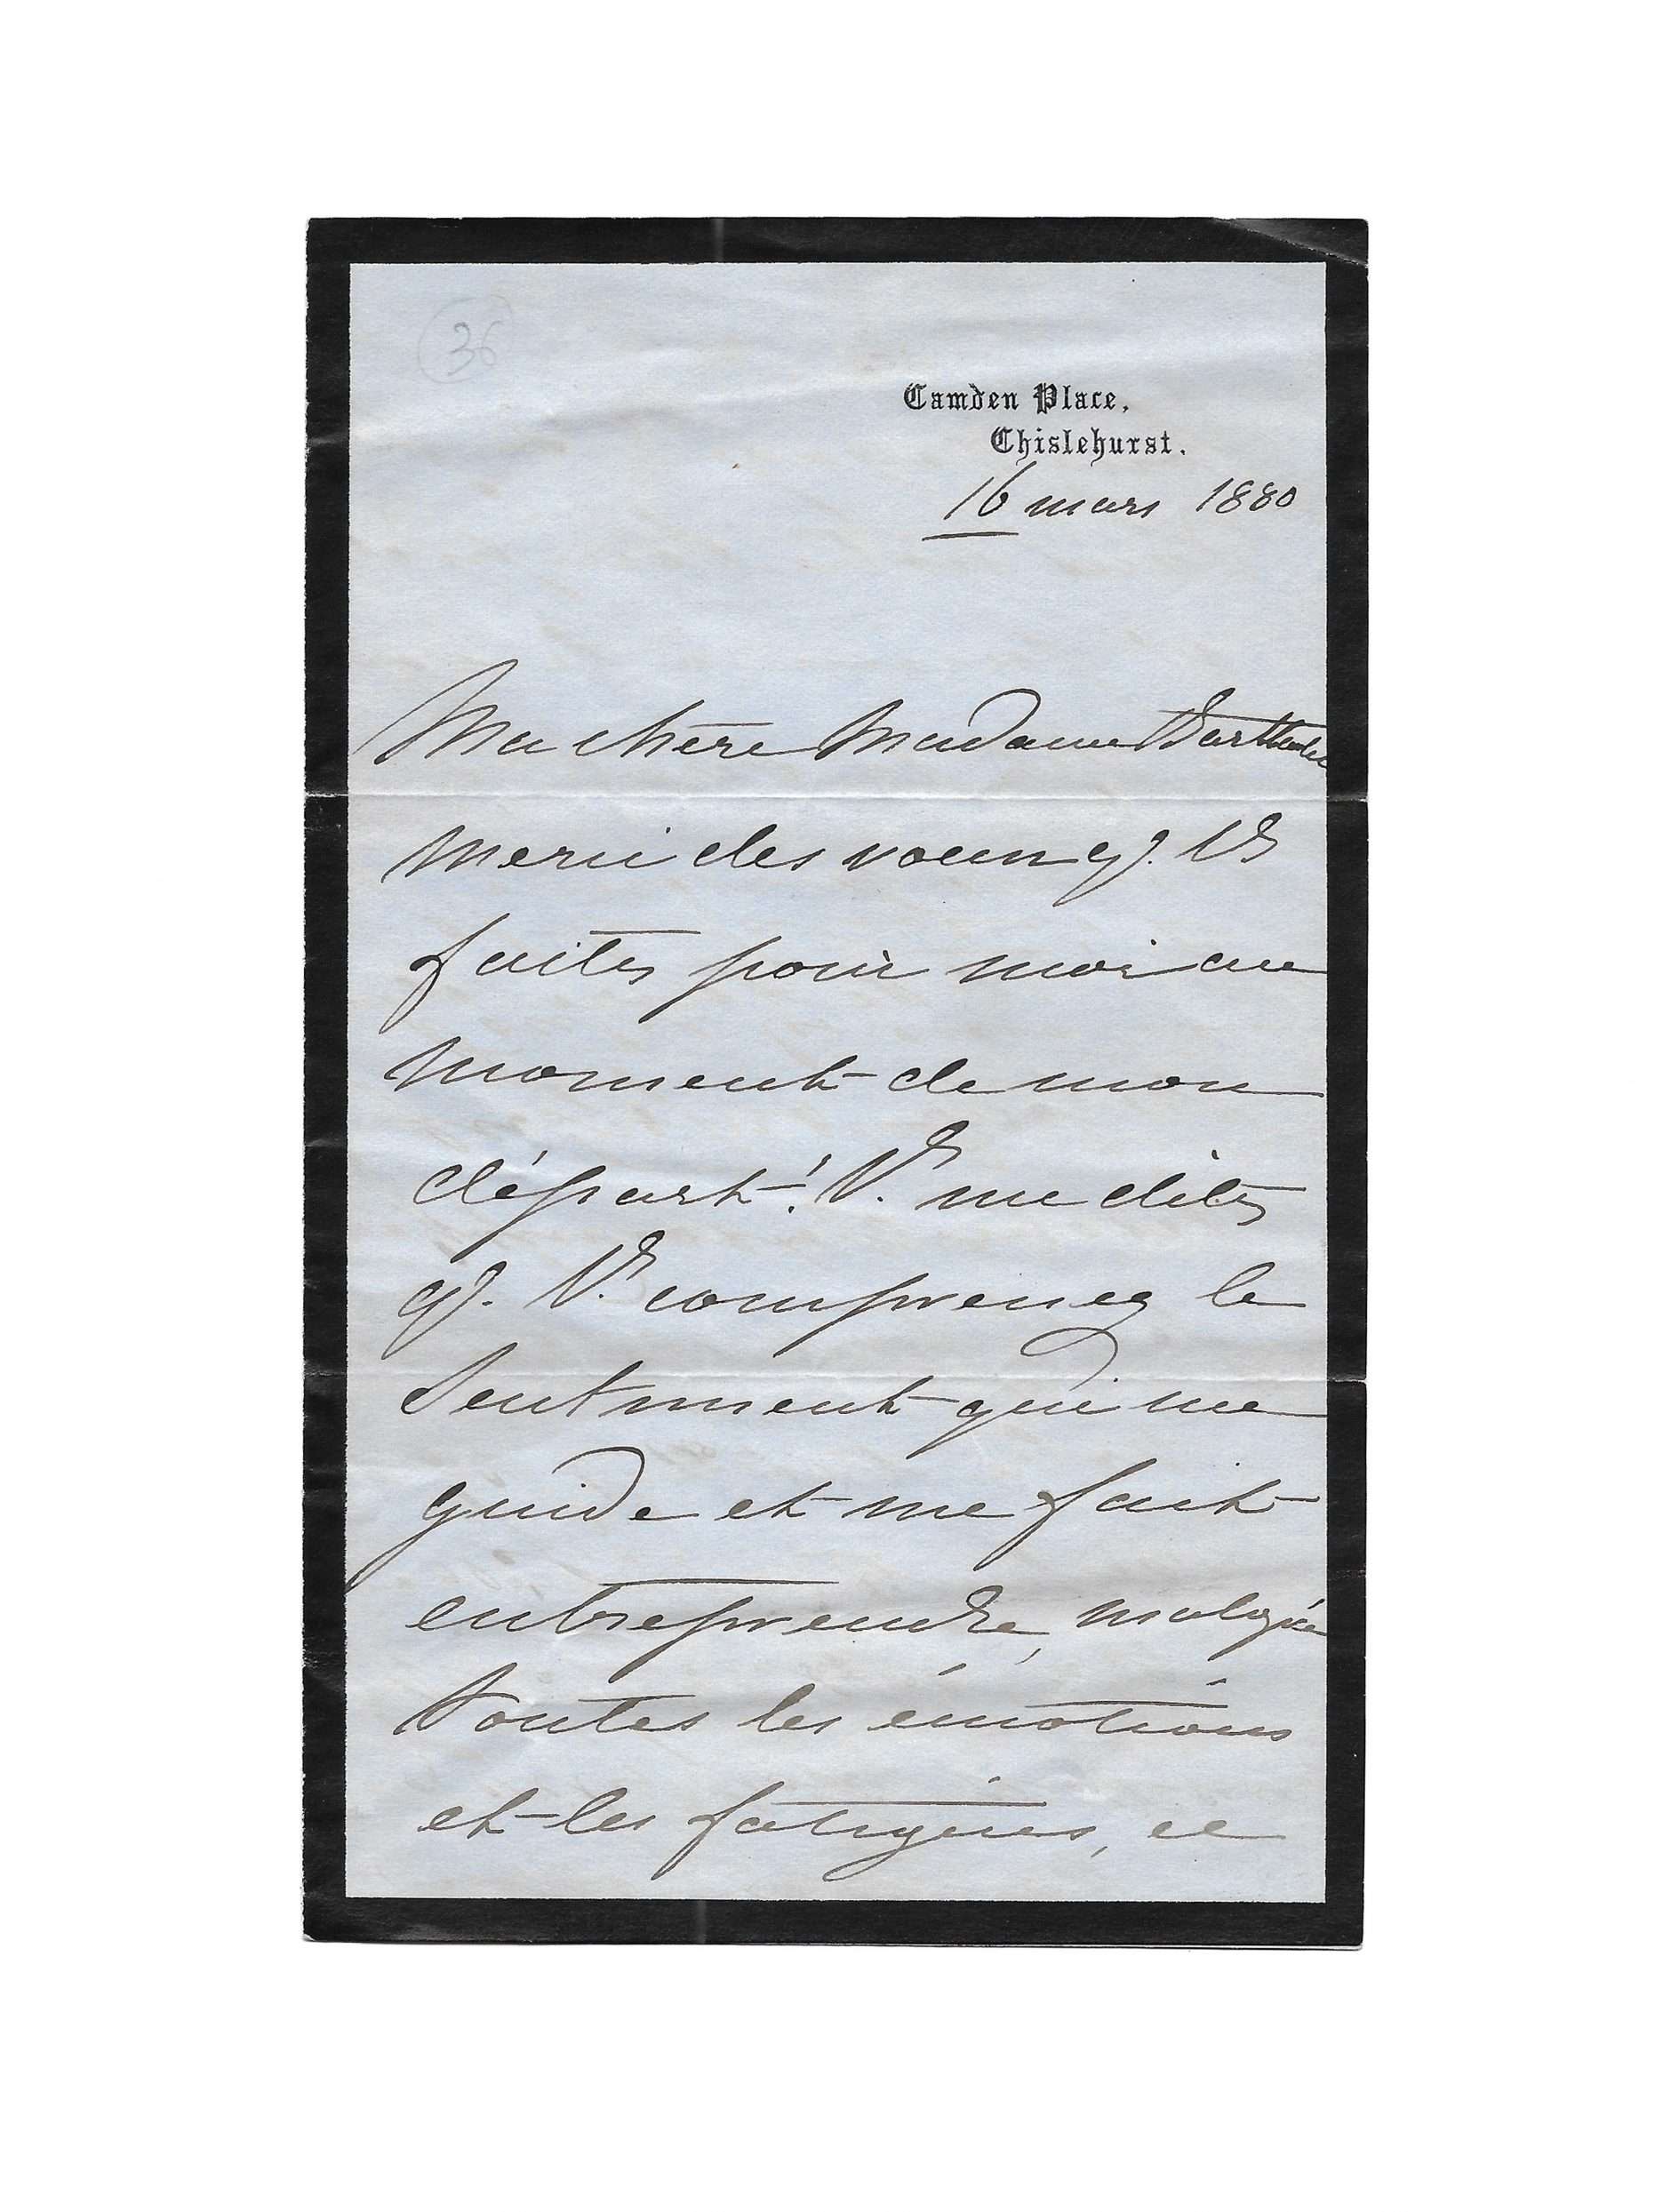 36
Camden Place,
Chislehurst.
16 mars 1880
Ma chère Madame
Merci des voeux q. Vs
faites pour moi au
moment de mon
départ! Vs. me dites
q. Vs. comprenez le
Sentiment qui me
guide et me fait
entreprendre, malgré
toutes les émotions
et les fatigues, ce